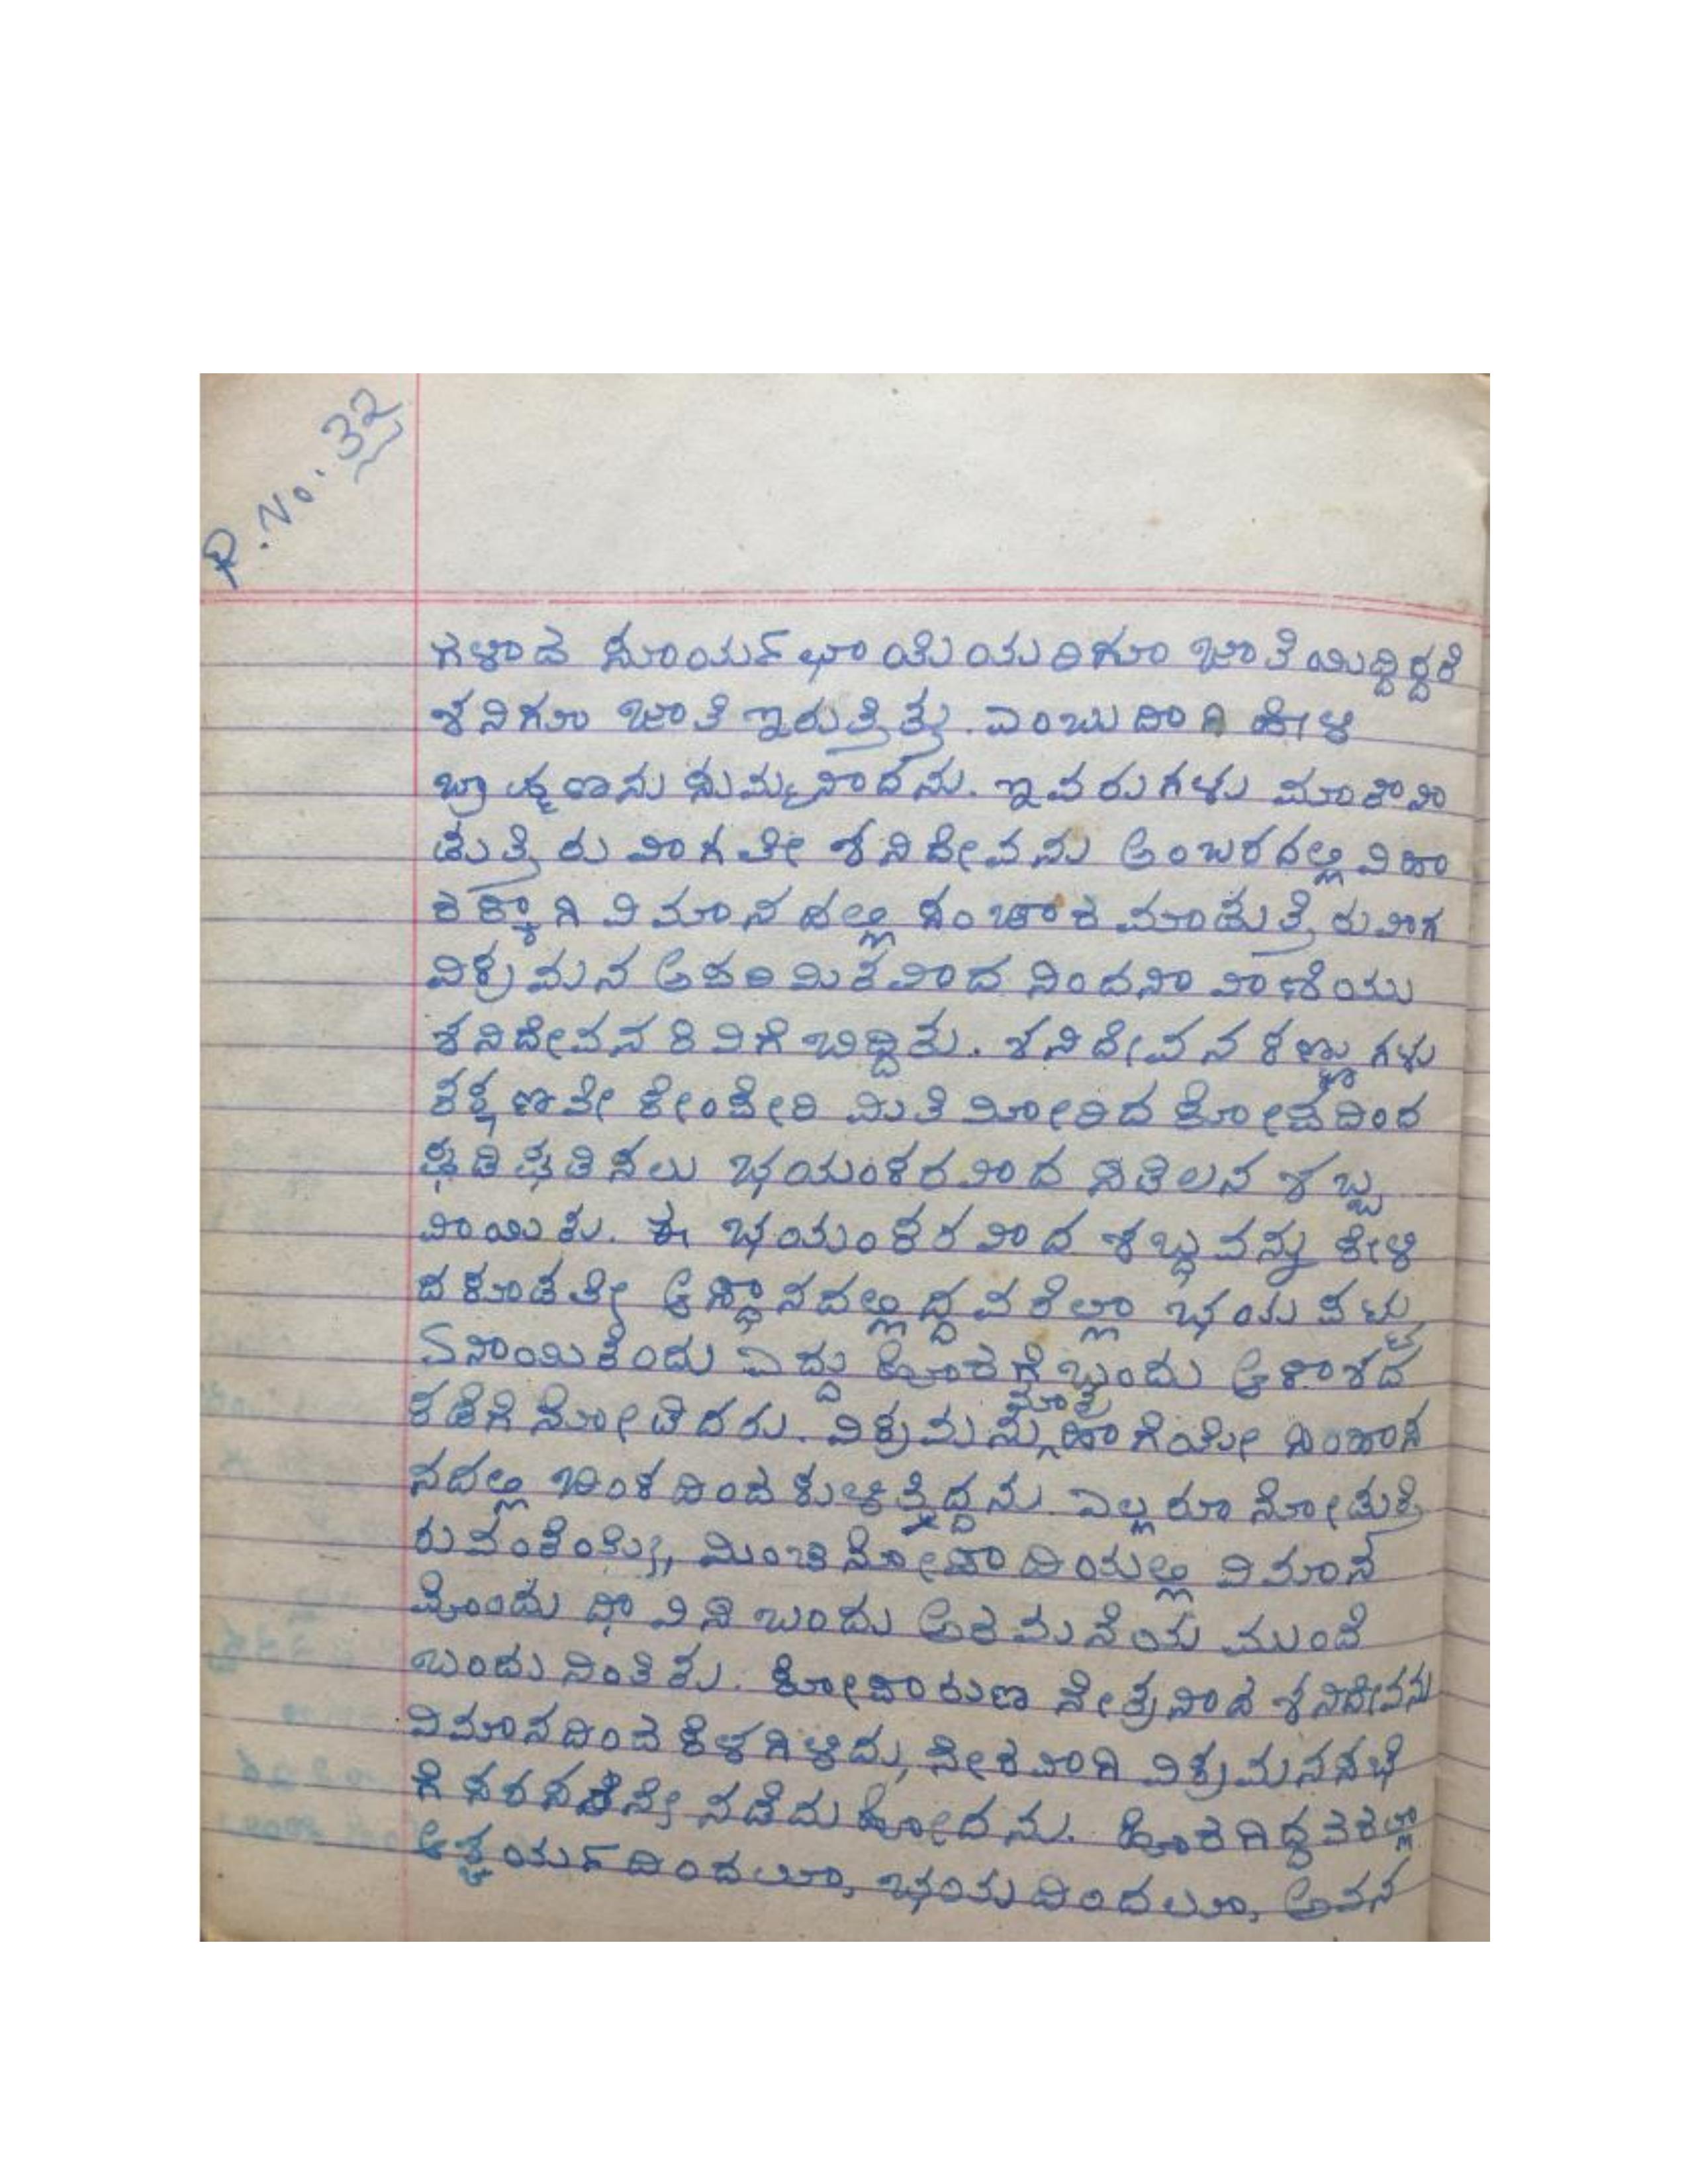 P. No. 32
ಗಳಾದ ಸೂರ್ಯ ಛಾಯೆಯರಿಗೂ ಜಾತಿಯಿದ್ದಿದ್ದರೆ
ಶನಿಗೂ ಜಾತಿ ಇರುತ್ತಿತ್ತು. ಎಂಬುದಾಗಿ ಹೇಳಿ
ಬ್ರಾಹ್ಮಣನು ಸುಮ್ಮನಾದನು. ಇವರುಗಳು ಮಾತನಾ
ಡುತ್ತಿರುವಾಗತೇ ಶನಿದೇವನು ಅಂಬರದಲ್ಲಿ ವಿಹಾ
ರಕ್ಕಾಗಿ ವಿಮಾನದಲ್ಲಿ ಸಂಚಾರ ಮಾಡುತ್ತಿರುವಾಗ
ವಿಕ್ರಮನ ಅಪರಿಮಿತವಾದ ನಿಂದನಾ ವಾಣಿಯು
ಶನಿದೇವನ ಕಿವಿಗೆ ಬಿದ್ದಿತು. ಶನಿದೇವನ ಕಣ್ಣುಗಳು
ತಕ್ಷಣವೇ ಕೇಂಪೇರಿ ಮಿತಿ ಮೀರಿದ ಕೋಪದಿಂದ
ಘಡಿಘಡಿಸಲು ಭಯಂಕರವಾದ ಸಿಡಿಲನ ಶಬ್ಧ
ವಾಯಿತು. ಈ ಭಯಂಕರವಾದ ಶಬ್ಧವನ್ನು ಕೇಳಿ
ದಕೂಡತೇ ಆಸ್ಥಾನದಲ್ಲಿದ್ದವರೆಲ್ಲಾ ಭಯಪಟ್ಟು
ಏನಾಯಿತೆಂದು ಎದ್ದು ಹೊರಗೆ ಬಂದು ಆಕಾಶದ
ಕಡೆಗೆ ನೋಡಿದರು. ವಿಕ್ರಮನು ಮಾತ್ರ ಹಾಗೆಯೇ ಸಿಂಹಾಸ
ನದಲ್ಲಿ ಬಿಂಕದಿಂದ ಕುಳಿತ್ತಿದ್ದನು. ಎಲ್ಲರೂ ನೋಡುತ್ತಿ
ರುವಂತೆಯ್ಯೆ, ಮಿಂಚಿನೋಪಾದಿಯಲ್ಲಿ ವಿಮಾನ
ವೊಂದು ಧಾವಿಸಿ ಬಂದು ಅರಮನೆಯ ಮುಂದೆ
ಬಂದು ನಿಂತಿತು. ಕೋಪಾರುಣ ನೇತ್ರನಾದ ಶನಿದೇವನು
ವಿಮಾನದಿಂದ ಕೆಳಗಿಳಿದು, ನೇರವಾಗಿ ವಿಕ್ರಮನ ಸಭೆ
ಗೆ ಸರಸರನೆ ನಡೆದು ಹೋದನು. ಹೊರಗಿದ್ದವರೆಲ್ಲಾ
ಆಶ್ಚರ್ಯದಿಂದಲೂ, ಭಯದಿಂದಲೂ, ಅವನ